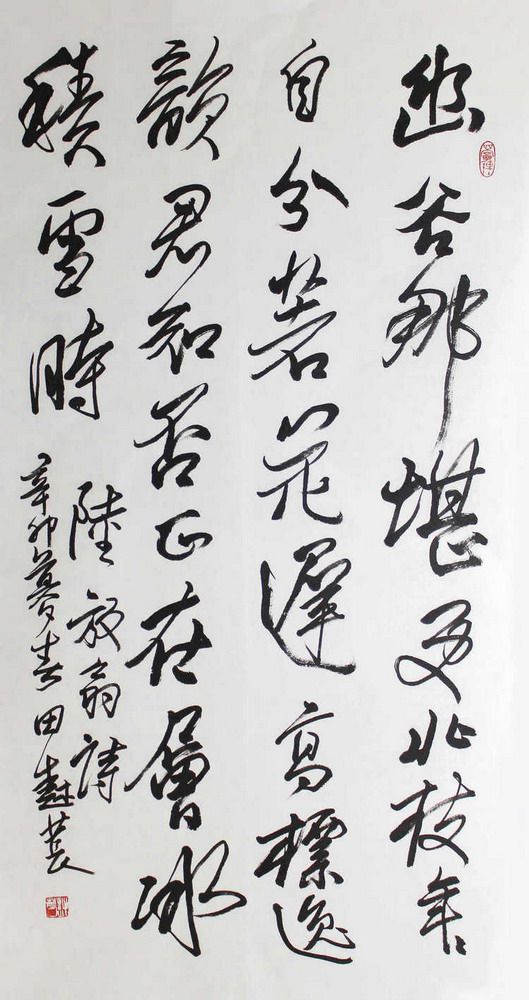 幽谷那堪更北枝年々
自分著花遲高標逸
韻君知否正在層冰
積雪時
陸放翁詩
辛卯暮春田樹萇